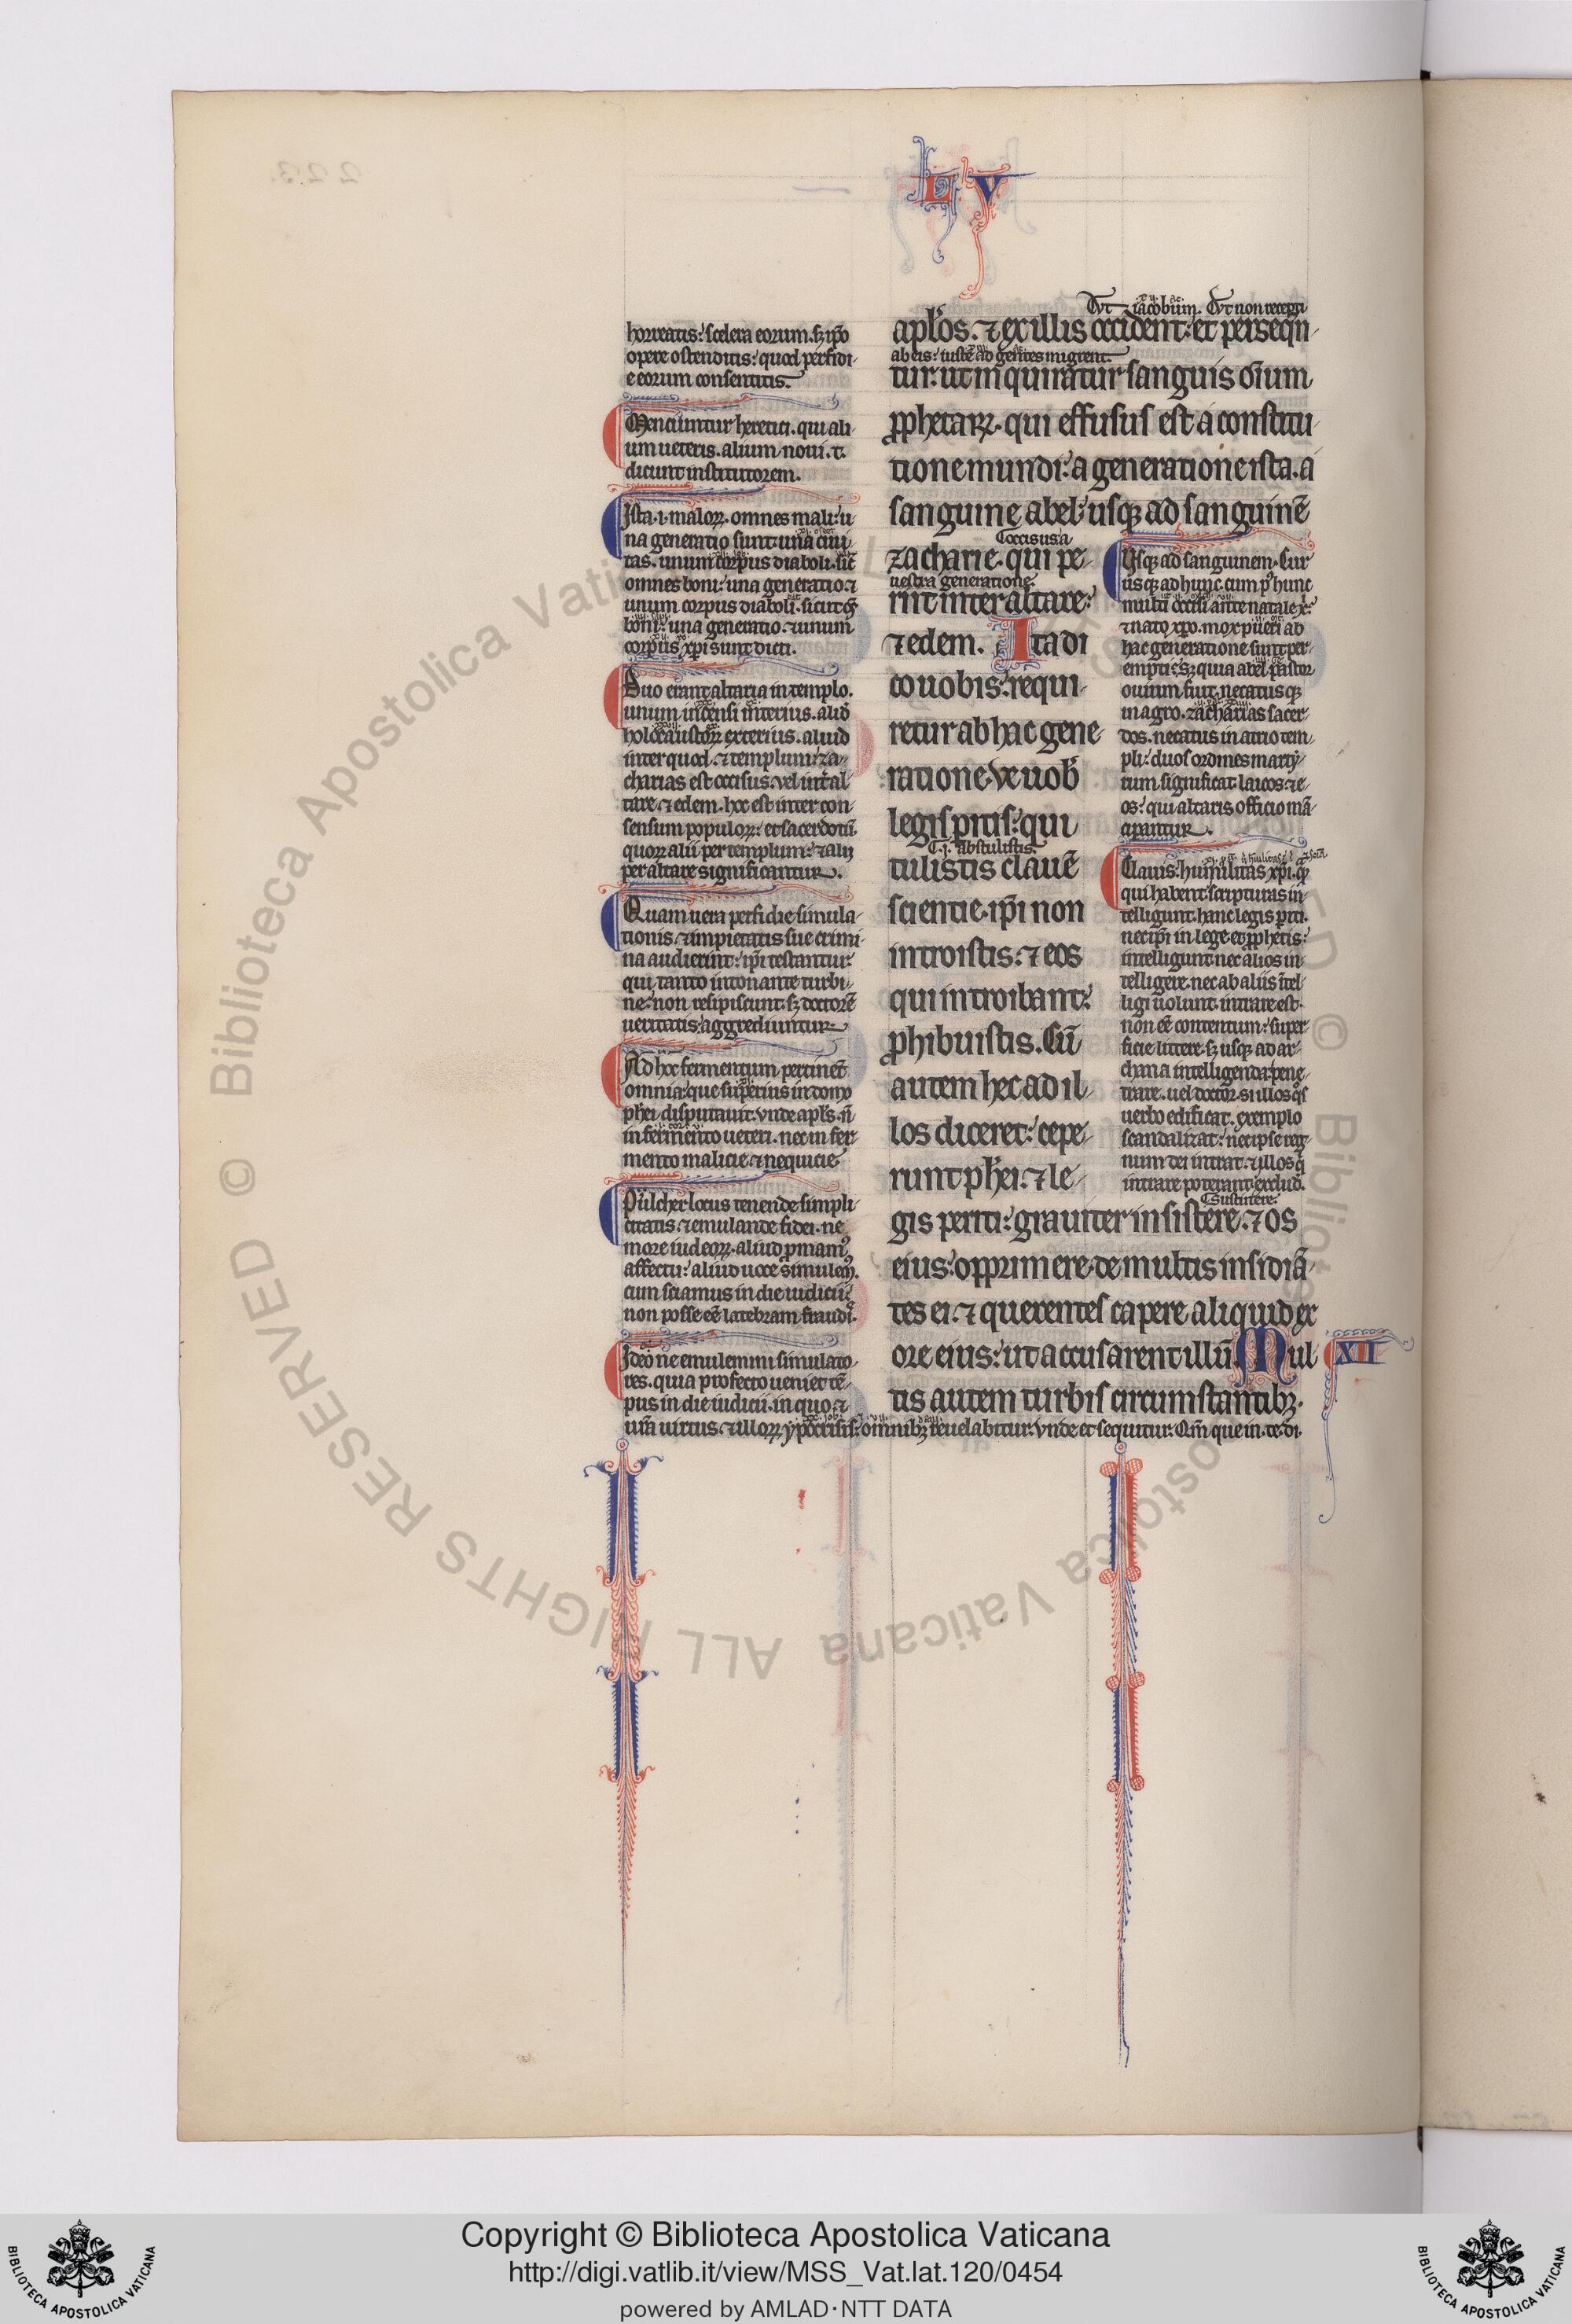 L V
horreatis: scelera eorum. sꝫ ip̄o
opere ostenditis: quod perfidi-
e eorum consentitis.
Mentiuntur heretici. qui ali-
um ueteris. alium noui. t.
dicunt institutorem.
Ista .i. maloꝝ. omnes mali: u
na generatio sunt: una ciui-
tas. unum corpus diaboli. sic̄
omnes boni: una generatio: ⁊
unum corpus diaboli. sicut
boni: una generatio. ⁊ unum
corpus xp̄i sunt dicti.
Duo erant altaria in templo.
unum incensi interius. aliud
holocaustoꝝ exterius. aliud
inter quod ⁊ templum: za-
charias est occisus: uel int̄ al-
tare ⁊ edem. hoc est inter con-
sensum populoꝝ: et sacerdotū.
quoꝝ alii per templum: ⁊ alii
per altare significantur.
Quam uera perfidie simula-
tionis ⁊ impietatis sue crimi-
na audierint: ip̄i testantur:
qui tanto intonante turbi-
ne: non resipiscunt. sꝫ doctorē
ueritatis aggrediuntur.
Ad hoc fermentum pertinet
omnia: que superius in domo
ph̄ei disputauit. vnde apl̄s. n̄
in fermento ueteri. nec in fer-
mento malicie ⁊ nequicie.
Pulcher locus tenende simpli-
citatis. ⁊ emulande fidei. ne
more iudeoꝝ. aliud
affectu: aliud uoce simulem᷒.
cum sciamus in die iudicii:
non posse eē latebram fraudi.
Ideo ne emulemini simulato-
res. quia profecto ueniet tē-
pus in die iudicii. in quo ⁊
ur̄a uirtus ⁊ illoꝝ ypocrisis: omnibꝫ reuelabitur. vnde et sequitur. Qm̄ que in. te. di.
Vt iacobum. Vt non recepti
apl̄os. ⁊ ex illis occident: et perseqn̄-
ab eis: iuste ad gentes migrent.
tur: ut inquiratur sanguis oīum
ꝓphetaꝝ. qui effusus est a constitu-
tione mundi: a generatione ista. a
sanguine abel: usqꝫ ad sanguinē
occisus a
zacharie. qui pe-
uestra generatione.
riit inter altare:
⁊ edem. Ita di
co uobis: requi-
retur ab hac gene-
ratione. Ve uob̄
legis ꝑitis: qui
.i. abstulistis.
tulistis clauē
scientie. ip̄i non
introistis: ⁊ eos
qui introibant:
ꝓhibuistis. Cū
autem hec ad il-
los diceret: cepe-
runt ph̄ei: ⁊ le-
Sustinere.
gis periti: grauiter insistere. ⁊ os
eius: opprimere de multis insidiā-
tes ei: ⁊ querentes capere aliquid ex
ore eius: ut accusarent illū. Mul
XII
tis autem turbis circumstantibꝫ.
Vsqꝫ ad sanguinem. Cur
usqꝫ ad hunc. cum p᷒ hunc
multi occisi ante natale x̄:
⁊ nato xp̄o. mox pueri ab
hac generatione sunt per-
empti: sꝫ quia abel pastor
ouium fuit. necatusqꝫ
in agro. zacharias sacer-
dos. necatus in atrio tem-
pli: duos ordines marty-
rum significat: laicos: ⁊ e-
os: qui altaris officio mā-
cipantur.
Clauis: humilitas xp̄i. qꝫ
qui habent: scripturas in-
telligunt. hanc legis ꝑiti.
nec ip̄i in lege et ꝓphetis:
intelligunt. nec alios in-
telligere. nec ab aliis ītel-
ligi uolunt. intrare est.
non eē contentum: super-
ficie littere. sꝫ usqꝫ ad ar-
chana intelligenda pene-
trare. uel doctor. si illos qͦs
uerbo edificat. exemplo
scandalizat: nec ipse reg-
num dei intrat. ⁊ illos qͥ
intrare poterant. exclud̄.
© Biblioteca Apostolica Vaticana ALL RIGHTS RESERVED
Copyright © Biblioteca Apostolica Vaticana
http://digi.vatlib.it/view/MSS_Vat.lat.120/0454
powered by AMLAD·NTT DATA
BIBLIOTECA APOSTOLICA VATICANA
BIBLIOTECA APOSTOLICA VATICANA